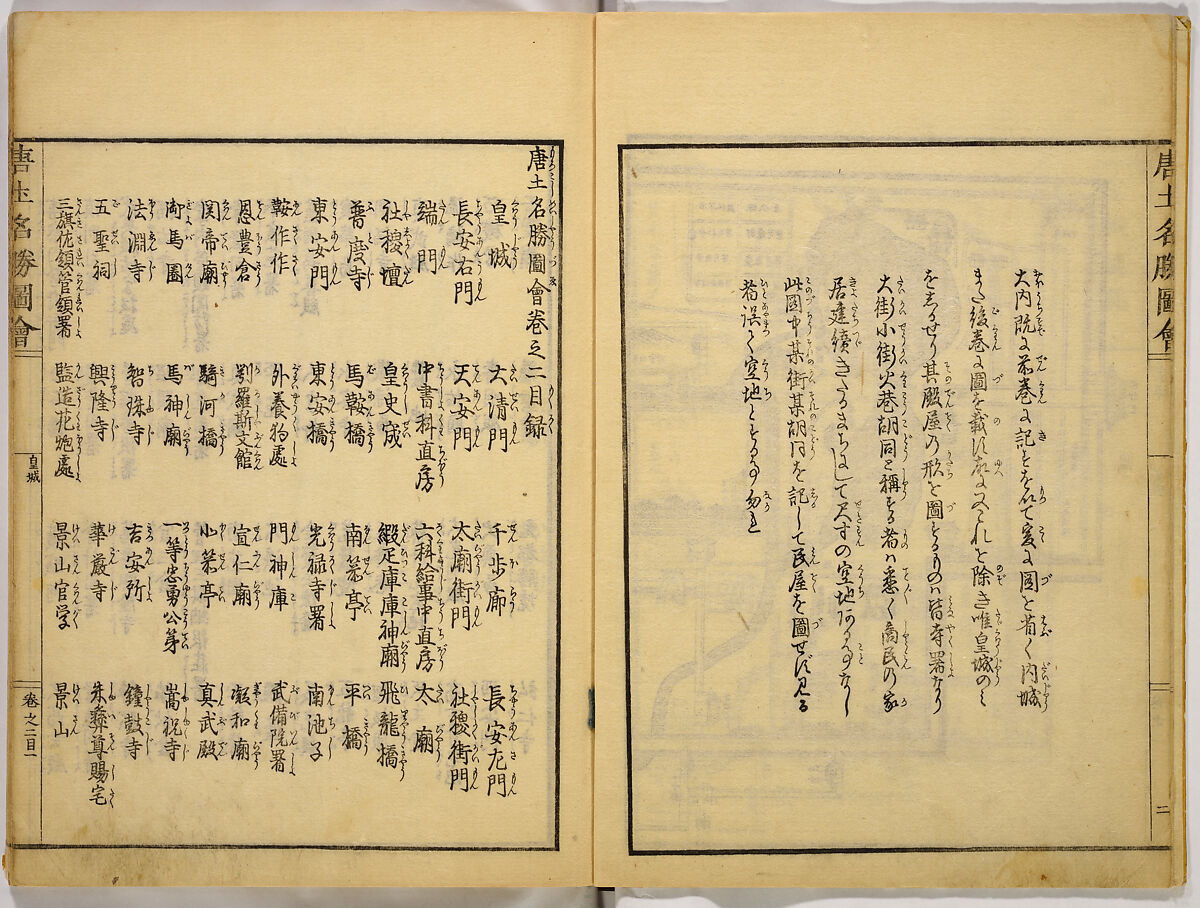 唐土名勝圖會 二
大内既に前巻に記すを以て爰に圖を省く内城
また後巻に圖を載す故に又これを除き唯皇城のミ
を志るせり其殿屋の形を圖するものハ皆寺署なり
大街小街火巷胡同と稱する者ハ悉く商民の家
居建續きたるまちにして尺寸の空地あることなし
此圖中某街某胡同を記して民屋を圖せず見る
者誤て空地とすること勿れ
唐土名勝圖會巻之二目録
皇城 大清門 千歩廊 長安左門
長安右門 天安門 太廟街門 社稷街門
端門 中書科直房 六科給事中直房 太廟
社稷壇 皇史宬 緞疋庫庫神廟 飛龍橋
普度寺 馬鞍橋 南箓亭 平橋
東安門 東安橋 光禄寺署 南池子
鞍作作 外養狗處 門神庫 武備院署
恩豊倉 羅斯文館 宜仁廟 凝和廟
関帝廟 騎河橋 北箓亭 真武殿
御馬圏 馬神廟 一等忠勇公第 嵩祝寺
法淵寺 智珠寺 吉安所 鐘鼓寺
五聖祠 興隆寺 華嚴寺 朱彝尊賜宅
三旗佐領管領署 監造花炮處 景山官学 景山
唐土名勝圖會 皇城 巻之二目一